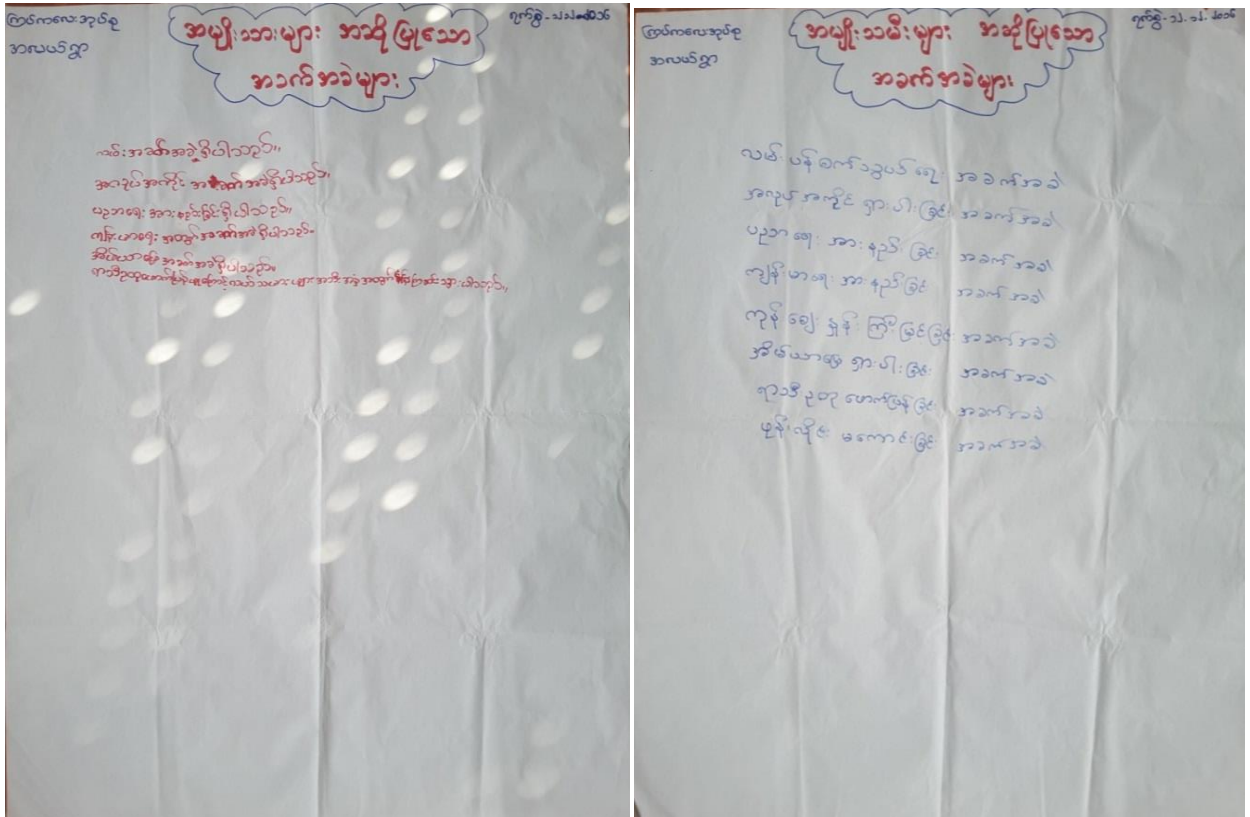 ကြပ်ကလေးအုပ်စု
အလယ်ရွာ
အမျိုးသားများ အဆိုပြုသော
အခက်အခဲများ
လမ်းအခက်အခဲရှိပါသည်။
အလုပ်အကိုင် အခက်အခဲရှိပါသည်။
ပညာရေး အားနည်းခြင်းရှိပါသည်။
ကျန်းမာရေး အတွက်အခက်အခဲရှိပါသည်။
အိမ်ယာမြေ အခက်အခဲရှိပါသည်။
ရာသီဥတုဖောက်ပြန်မှုကြောင့်လယ်သမားများ
ကြပ်ကလေးအုပ်စု
အလယ်ရွာ
အမျိုးသမီးများ အဆိုပြုသော
ရက်စွဲ - ၁၂.၁၂.၂၀၁၆
အခက်အခဲများ
လမ်းပန်းဆက်သွယ်ရေး အခက်အခဲ
အလုပ်အကိုင်ရှားပါးခြင်း အခက်အခဲ
ပညာရေး အားနည်းခြင်း အခက်အခဲ
ကျန်းမာရေး အားနည်းခြင်း အခက်အခဲ
ကုန်ဈေးနှုန်းကြီးမြင့်ခြင်း အခက်အခဲ
အိမ်ယာမြေ ရှားပါးခြင်း အခက်အခဲ
ရာသီဥတု ဖောက်ပြန်ခြင်း အခက်အခဲ
ဖုန်းလိုင်း မကောင်းခြင်း အခက်အခဲ